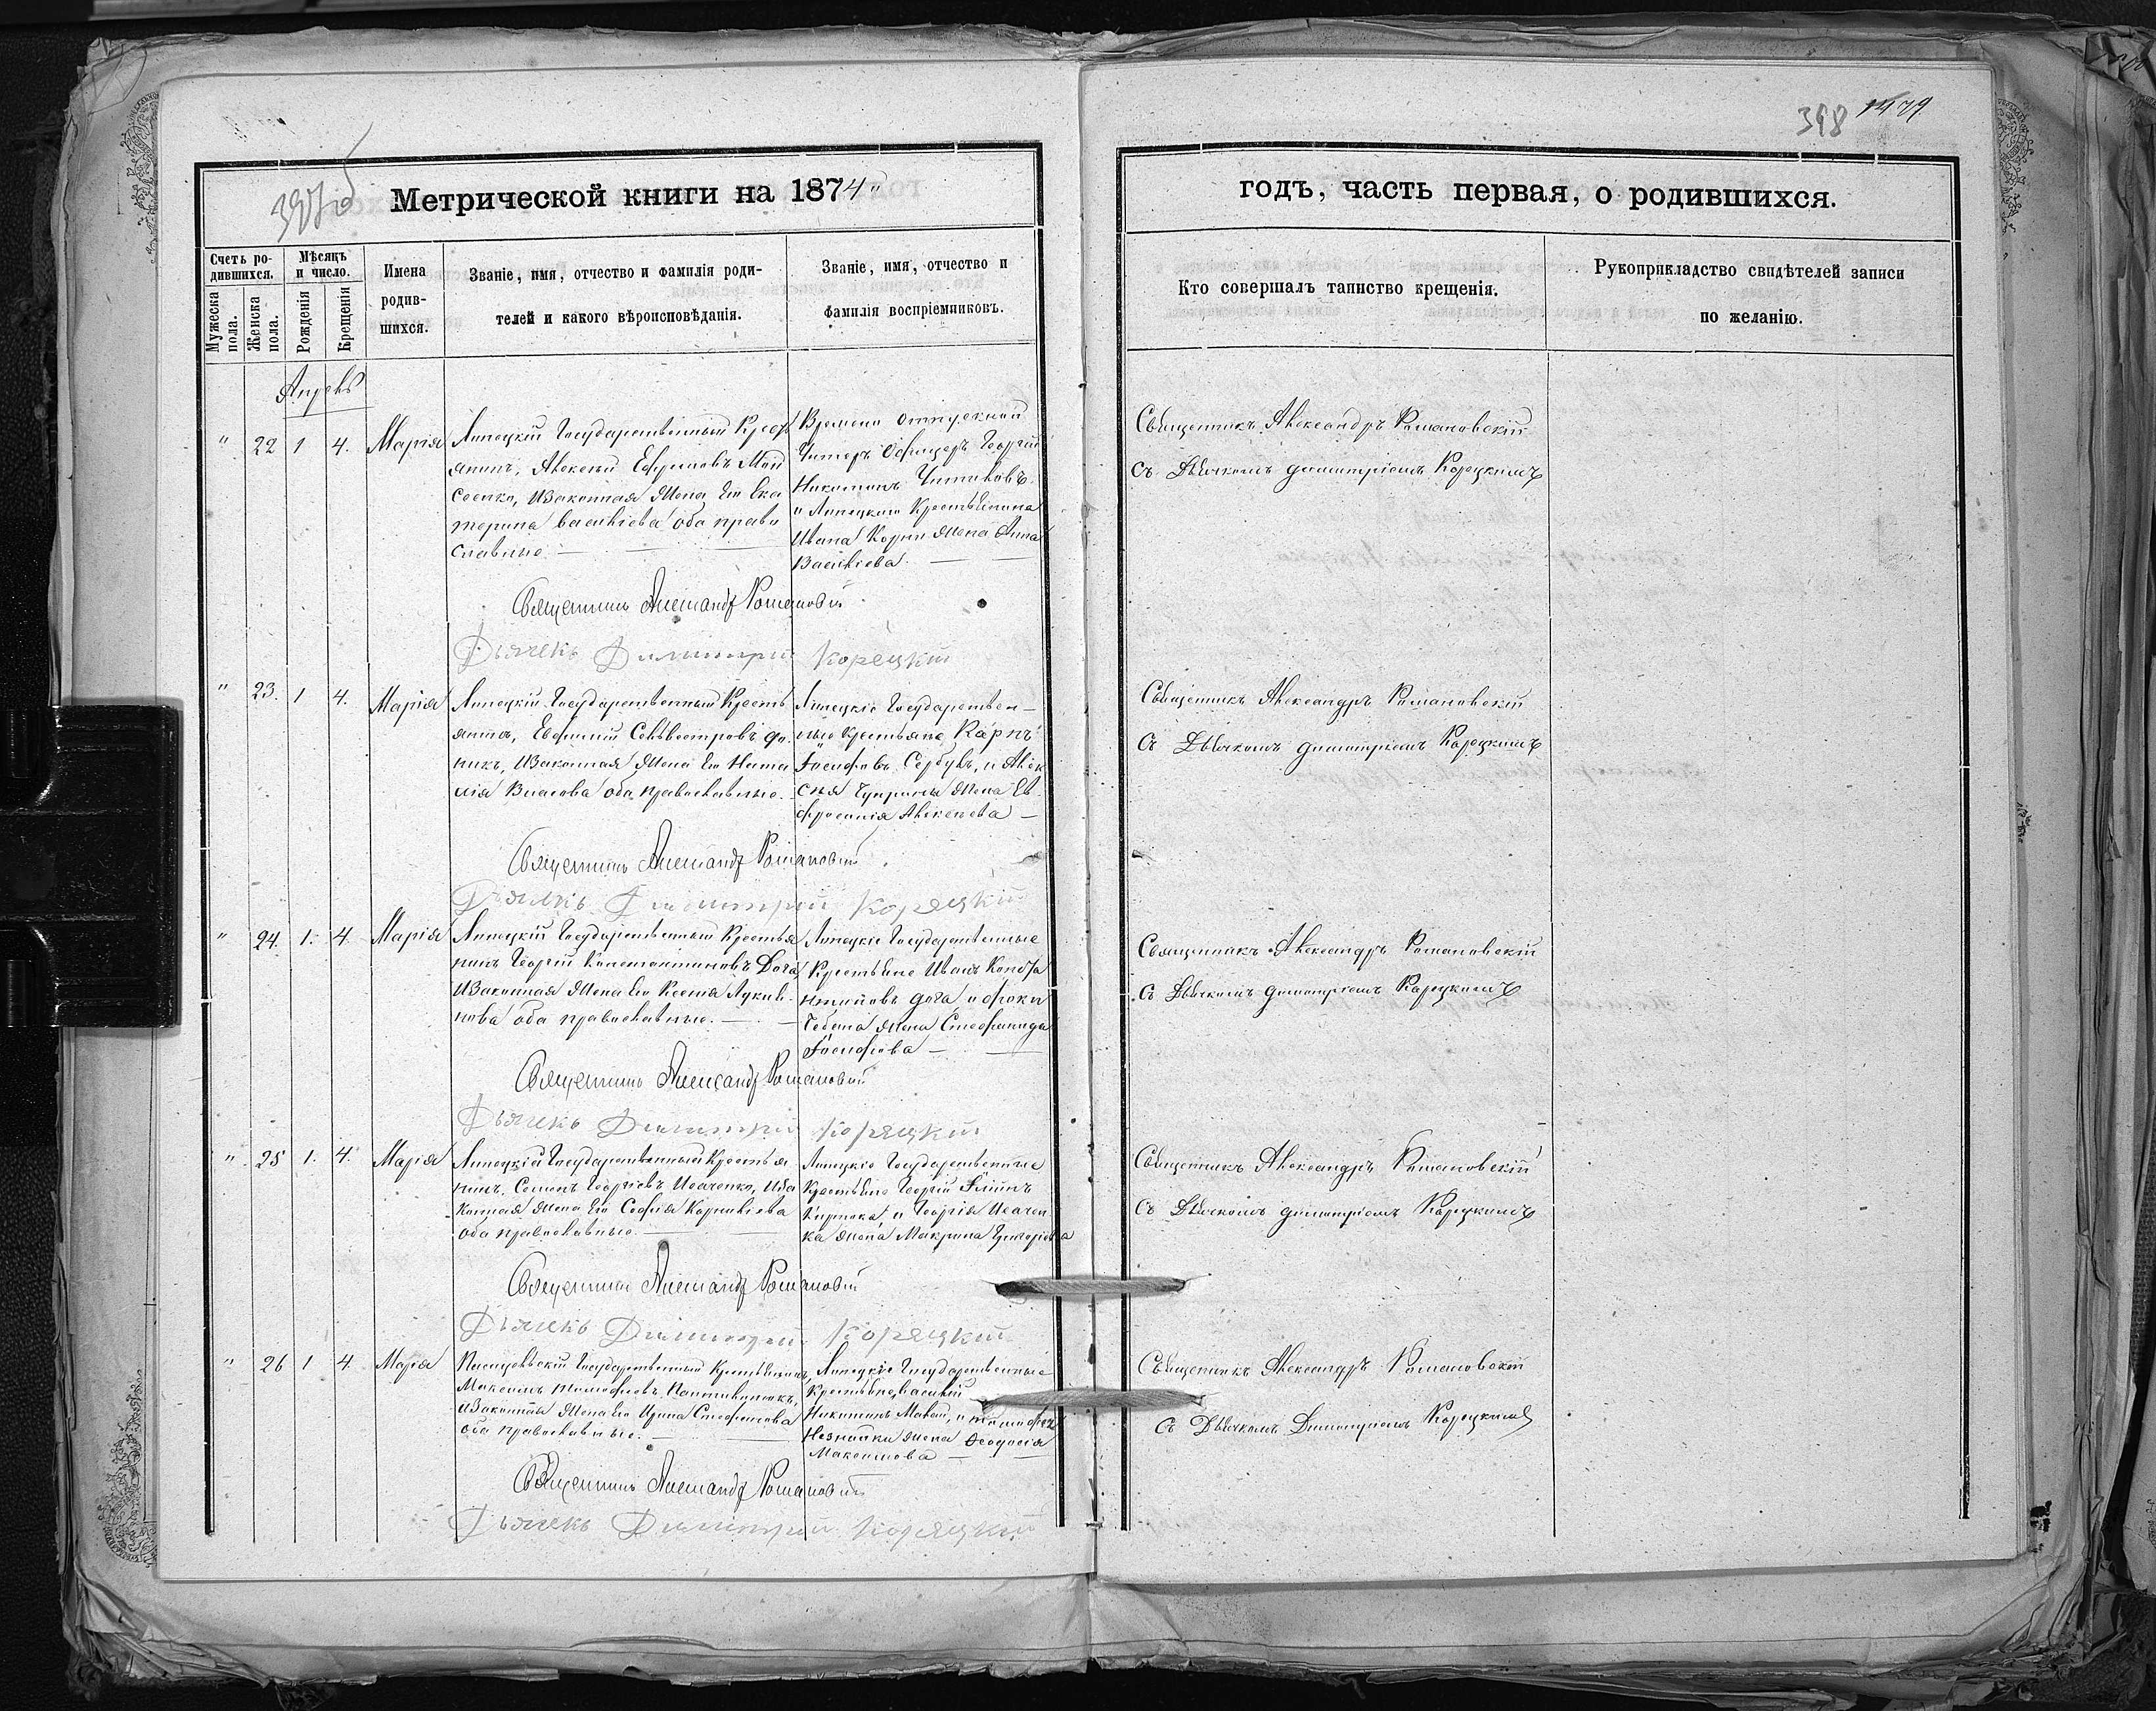 398 1479
Метрической книги на 1874
годъ, часть первая, о родившихся.
Счетъ ро-
дившихся.
Мужеска пола.
Женска пола.
Мѣсяцъ и число.
Рожденія
Крещенія
Имена
родив-
шихся.
Званіе, имя, отчество и фамилія роди-
телей и какого вѣроисповѣданія.
Званіе, имя, отчество и
фамилія воспріемниковъ.
Кто совершалъ таинство крещенія.
Рукоприкладство свидѣтелей записи
по желанію.
" 22 1 4. Марія
Липецкій Государственный Кресть
янинъ, Алексѣй Ефремовъ Мои
сеенко, и Законная Жена Его Ека
терина Васильева оба право
славные
Временно отпускной
Унтеръ Офицеръ Георгій
Никитинъ
и Липецкаго Крестьянина
Ивана Жена Анна
Васильева.
Священникъ Александръ Романовскій
съ Дьячкомъ Димитріемъ Корецкимъ
Священникъ Александръ Романовскій
Дьячекъ Димитрій Корецкій
" 23. 1 4. Марія
Липецкій Государственный Кресть
янинъ, Евфимій Сильвестровъ
и Законная Жена Его Ната
лія Власова оба православные.
Липецкіе Государствен-
ные Крестьяне Карпъ
Іосифовъ Сербулъ, и Алек
сѣя Жена Ев-
фросинія Алексѣева
Священникъ Александръ Романовскій
съ Дьячкомъ Димитріемъ Корецкимъ
Священникъ Александръ Романовскій
Дьячекъ Димитрій Корецкій
" 24. 1. 4. Марія
Липецкій Государственный Крестья
нинъ Георгій Константиновъ Дога,
и Законная Жена Его Ксенія Лукья-
нова оба православные.
Липецкіе Государственные
Крестьяне Иванъ Конста
нтиновъ Дога, и Фоки
Чебана Жена Стефанида
Іосифова
Священникъ Александръ Романовскій
съ Дьячкомъ Димитріемъ Корецкимъ
Священникъ Александръ Романовскій
Дьячекъ Димитрій Корецкій
" 25 1. 4. Марія
Липецкій Государственный Крестья
нинъ, Семенъ Георгіевъ Исаченко, и За
конная Жена Его Софія Корнильева
оба православные.
Липецкіе Государственные
Крестьяне Георгій
и Георгія Исачен
ка Жена Макрина Григорьева
Священникъ Александръ Романовскій
съ Дьячкомъ Димитріемъ Корецкимъ
Священникъ Александръ Романовскій
Дьячекъ Димитрій Корецкій
" 26 1 4 Марія
Государственный Крестьянинъ,
Максимъ Тимофеевъ
и Законная Жена Его Ирина Стефанова
оба православные.
Липецкіе Государственные
Крестьяне, Василій
Никитинъ и Тимофея
Незнайки Жена Феодосія
Максимова
Священникъ Александръ Романовскій
съ Дьячкомъ Димитріемъ Корецкимъ
Священникъ Александръ Романовскій
Дьячекъ Димитрій Корецкій